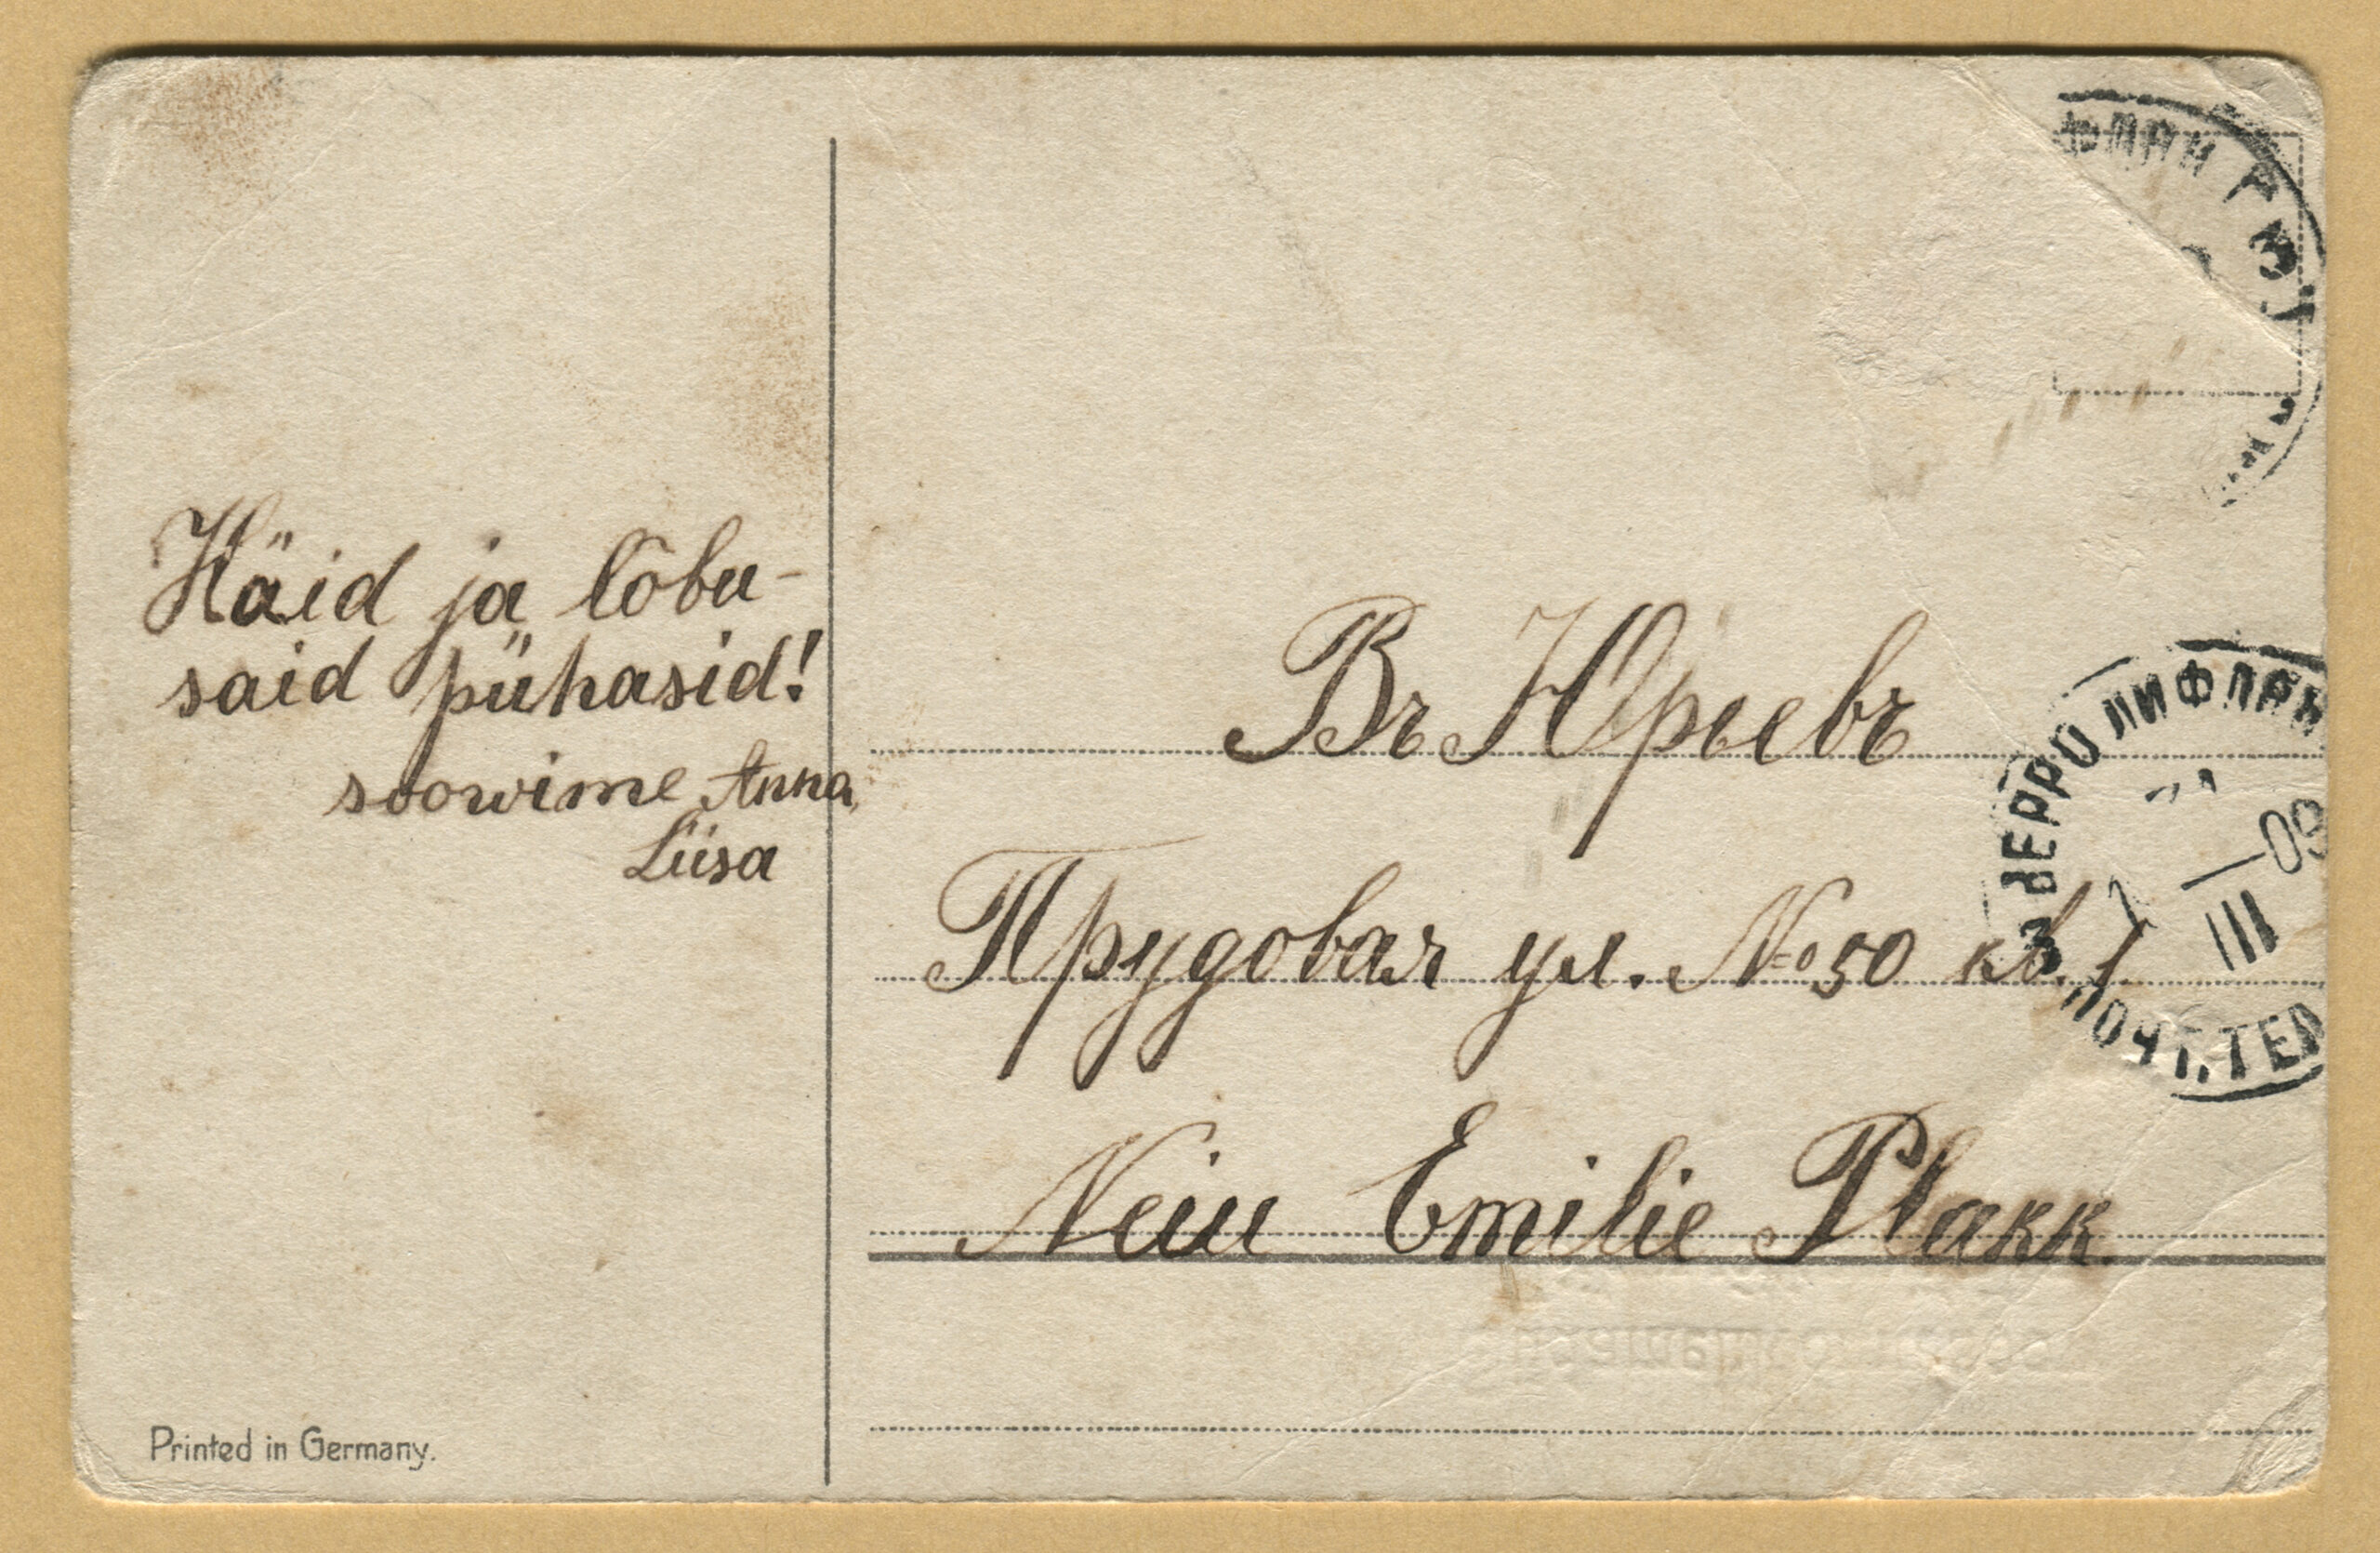 Häid ja lõbu-
said pühasid!
soowime Anna,
Liisa
Въ Юрьевъ
Прудовая ул. № 50 кв. 1
Neiu Emilie Plakk.
ВЕРРО ЛИФЛЯН
ПОЧТ. ТЕЛ
III
09
Printed in Germany.